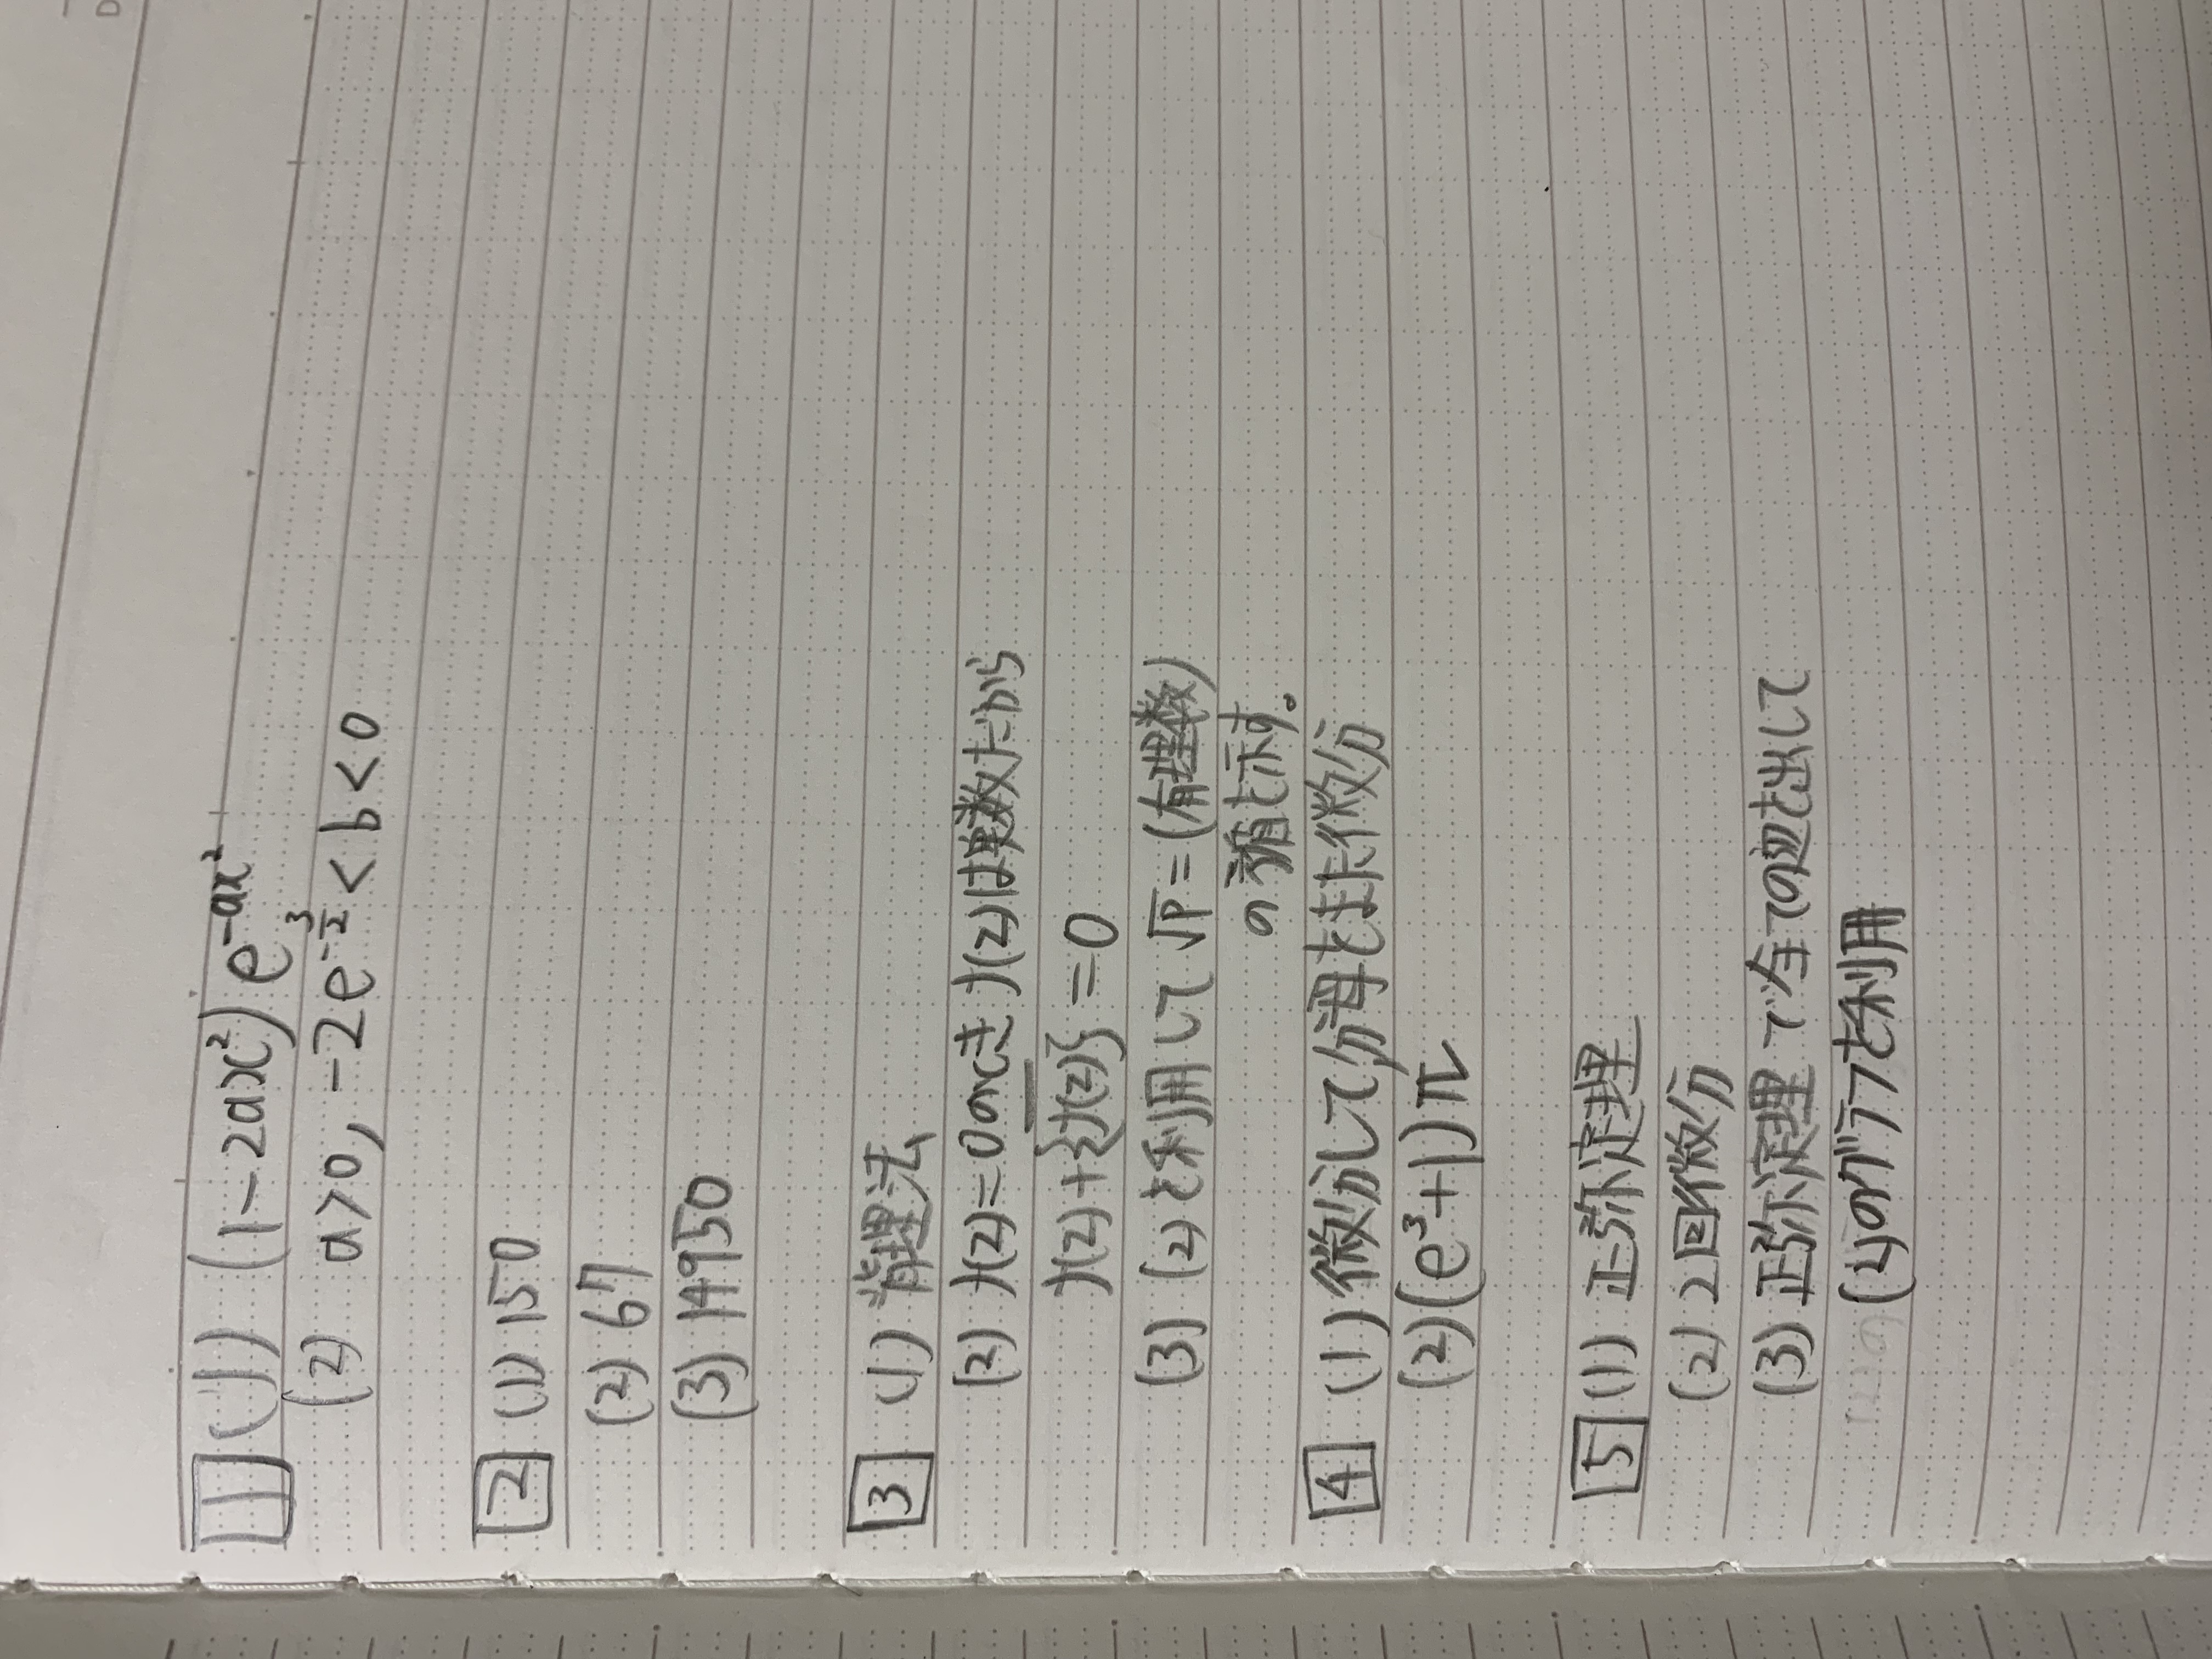 1 (1) (1-2ax²)e^{-ax²}
(2) a>0, -2e^{-3/2}<b<0
2 (1) 150
(2) 67
(3) 14950
3 (1) 背理法
(2) f(z)=0のとき f(z)は実数だから
f(z)+\overline{f(z)}=0
(3) (2)を利用して √p=(有理数)
の矛盾を示す。
4 (1) 微分して分母をまた微分
(2) (e³+1)π
5 (1) 正弦定理
(2) 2回微分
(3) 正弦定理で全ての辺を出して
(2)のグラフを利用